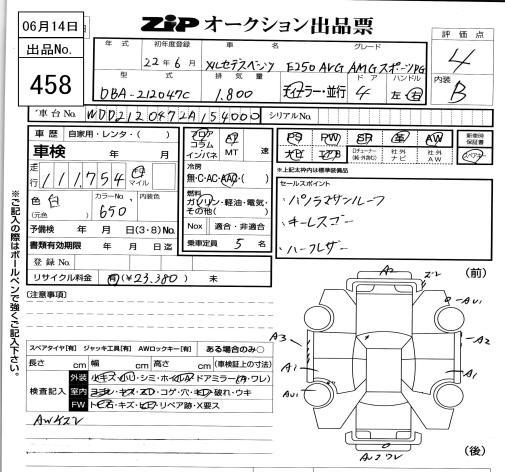 06月14日
ZIP オークション出品票
出品No.
458
評価点
4
内装
B
年式
初年度登録
車名
グレード
22年6月
メルセデスベンツ
E250 AVG AMGスポーツPG
型式
排気量
ドア
ハンドル
DBA-212047C
1,800
ディーラー・並行
4
左・右
車台No.
WDD2120472A154000
シリアルNo.
車歴
自家用・レンタ・( )
車検
年 月
走行
111,754
キロ
マイル
色
白
(元色)
カラーNo.
650
内装色
予備検
年 月 日(3・8)No.
書類有効期限
年 月 日迄
登録No.
リサイクル料金
有(¥23,380)
未
フロア
コラム
インパネ
AT
MT
速
冷房
無・C・AC・AAC・( )
燃料
ガソリン・軽油・電気・
その他( )
Nox
適合・非適合
乗車定員
5名
PS
PW
SR
革
AW
ナビ
エアB
社外
ナビ
社外
AW
新車時
保証書
スペアキー
※上記太枠内は標準装備品
セールスポイント
・パノラマサンルーフ
・キーレスゴー
・ハーフレザー
※ご記入の際はボールペンで強くご記入下さい。
(注意事項)
スペアタイヤ[有]
ジャッキ工具[有]
AWロックキー[有]
ある場合のみ○
長さ
cm
幅
cm
高さ
cm
(車検証上の寸法)
検査記入
外装
小キズ・小凹・シミ・ホイルA・ドアミラー(A・ワレ)
室内
ヨゴレ・キズ・スレ・コゲ・穴・キレ・破れ・ウキ
FW
トビ石・キズ・ヒビ・リペア跡・X要ス
AWキズ
(前)
A2
AU1
A3
A2
A1
A1
AU1
(後)